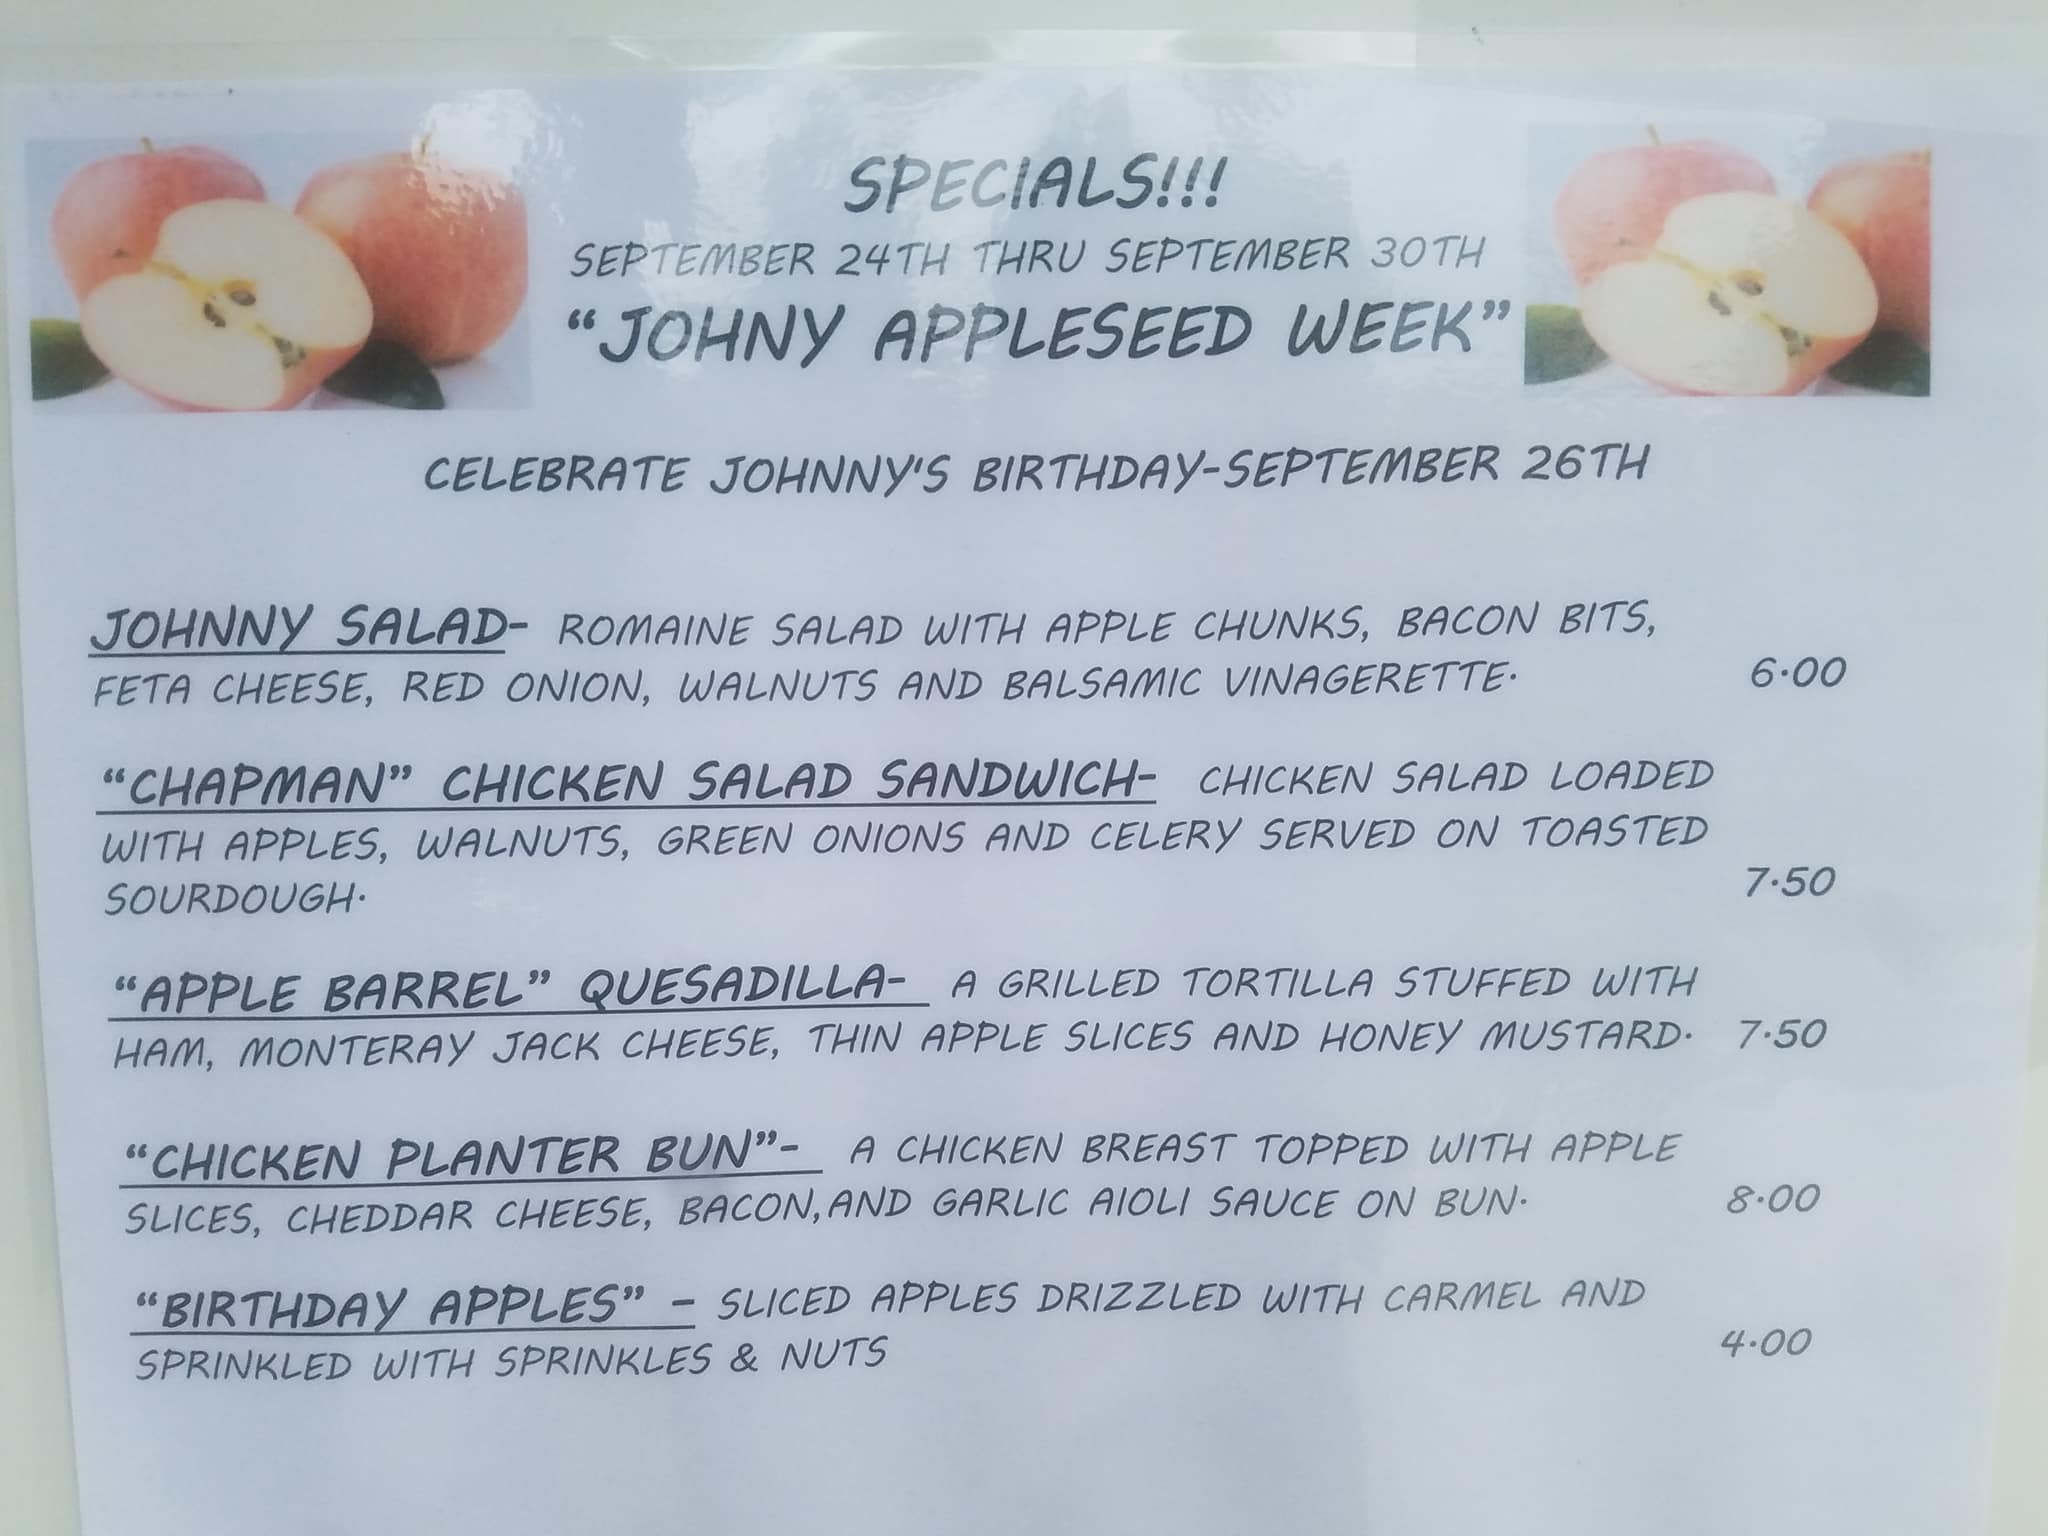 SPECIALS!!!
SEPTEMBER 24TH THRU SEPTEMBER 30TH
“JOHNY APPLESEED WEEK”
CELEBRATE JOHNNY'S BIRTHDAY-SEPTEMBER 26TH
JOHNNY SALAD- ROMAINE SALAD WITH APPLE CHUNKS, BACON BITS,
FETA CHEESE, RED ONION, WALNUTS AND BALSAMIC VINAGERETTE. 6.00
“CHAPMAN” CHICKEN SALAD SANDWICH- CHICKEN SALAD LOADED
WITH APPLES, WALNUTS, GREEN ONIONS AND CELERY SERVED ON TOASTED
SOURDOUGH. 7.50
“APPLE BARREL” QUESADILLA- A GRILLED TORTILLA STUFFED WITH
HAM, MONTERAY JACK CHEESE, THIN APPLE SLICES AND HONEY MUSTARD. 7.50
“CHICKEN PLANTER BUN”- A CHICKEN BREAST TOPPED WITH APPLE
SLICES, CHEDDAR CHEESE, BACON,AND GARLIC AIOLI SAUCE ON BUN. 8.00
“BIRTHDAY APPLES” - SLICED APPLES DRIZZLED WITH CARMEL AND
SPRINKLED WITH SPRINKLES & NUTS 4.00